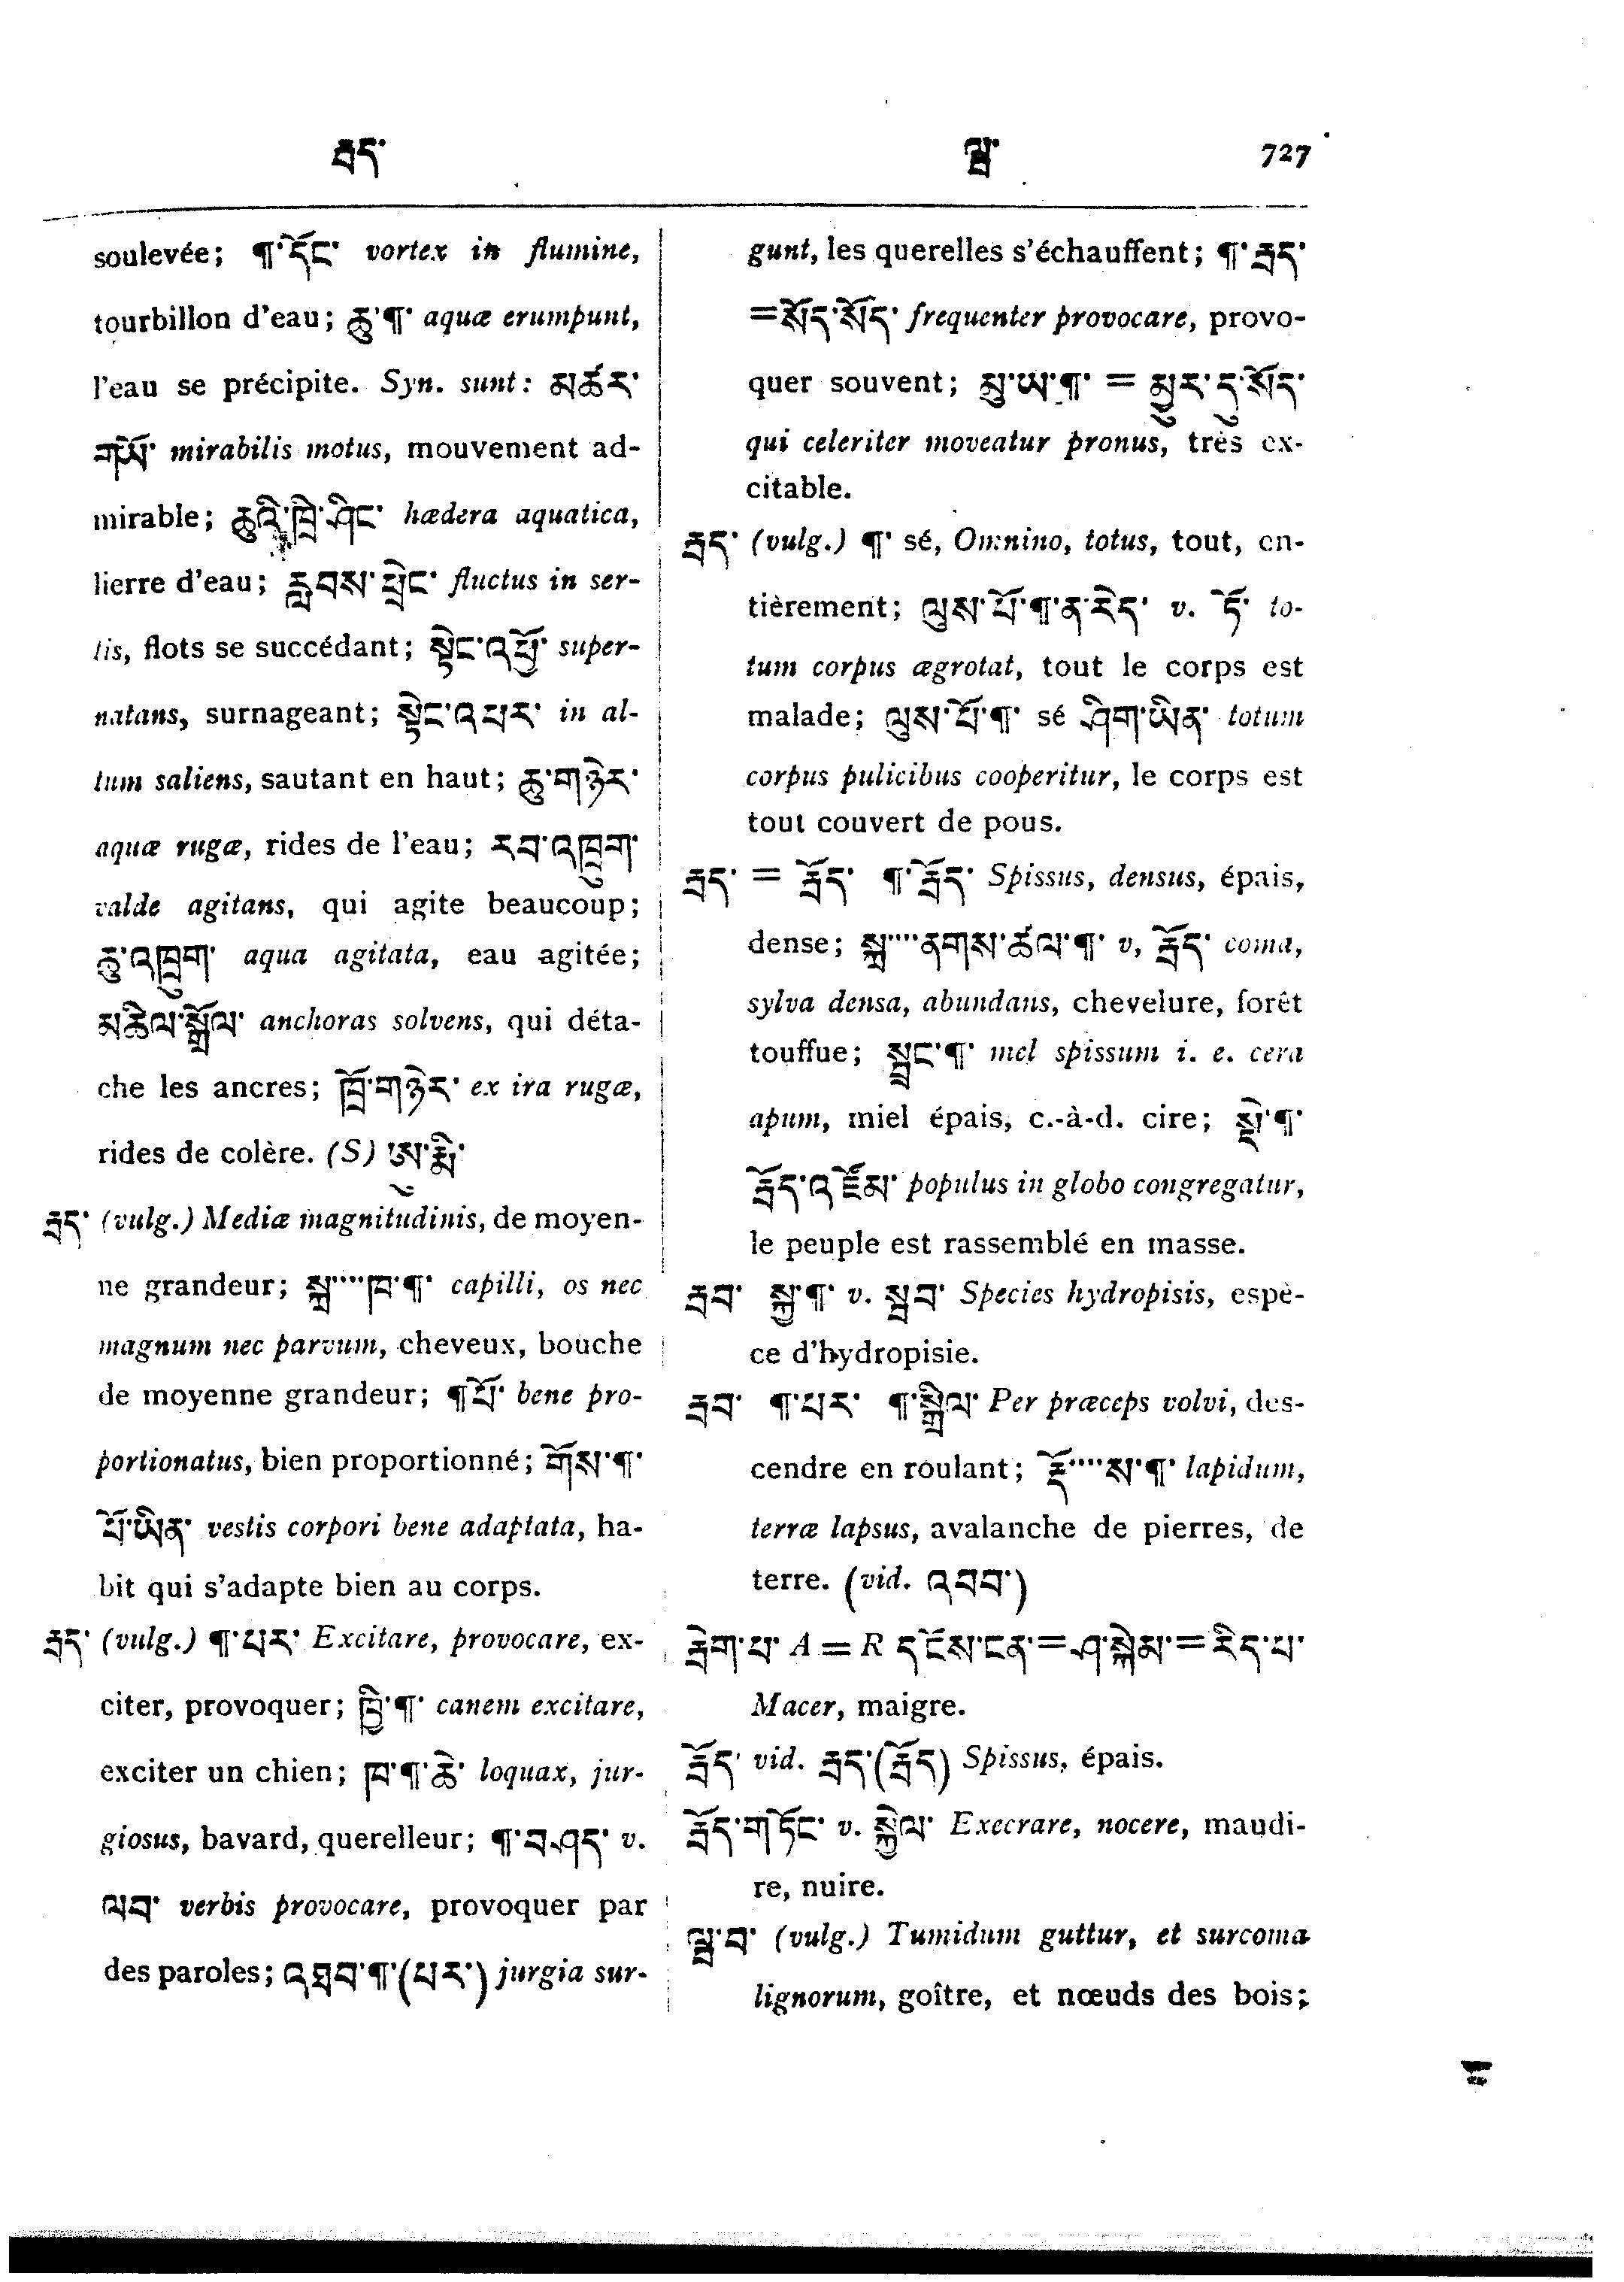 རྦད་
ལྦ་
727
soulevée; ¶་དོང་ vortex in flumine,
tourbillon d'eau; ཆུ་¶་ aquæ erumpunt,
l'eau se précipite. Syn. sunt: མཚར་
གཡོ་ mirabilis motus, mouvement ad-
mirable; ཆུའི་ཁྲི་ཤིང་ hædera aquatica,
lierre d'eau; རླབས་ཕྲེང་ fluctus in ser-
tis, flots se succédant; སྟེང་འཕྱོ་ super-
natans, surnageant; སྟེང་འཕར་ in al-
tum saliens, sautant en haut; ཆུ་གཉེར་
aquæ rugæ, rides de l'eau; རབ་འཁྲུག་
valde agitans, qui agite beaucoup;
ཆུ་འཁྲུག་ aqua agitata, eau agitée;
མཆིལ་སྒྲོལ་ anchoras solvens, qui déta-
che les ancres; ཁྲོ་གཉེར་ ex ira rugæ,
rides de colère. (S) ཨུ་རྨི་
རྦད་ (vulg.) Mediæ magnitudinis, de moyen-
ne grandeur; སྐྲ་····ཁ་¶་ capilli, os nec
magnum nec parvum, cheveux, bouche
de moyenne grandeur; ¶པོ་ bene pro-
portionatus, bien proportionné; གོས་¶་
པོ་ཡིན་ vestis corpori bene adaptata, ha-
bit qui s'adapte bien au corps.
རྦད་ (vulg.) ¶་པར་ Excitare, provocare, ex-
citer, provoquer; ཁྱི་¶་ canem excitare,
exciter un chien; ཁ་¶་ཆེ་ loquax, jur-
giosus, bavard, querelleur; ¶་བཤད་ v.
ལབ་ verbis provocare, provoquer par
des paroles; འཐབ་¶་(པར་) jurgia sur-
gunt, les querelles s'échauffent; ¶་རྦད་
=སོད་སོད་ frequenter provocare, provo-
quer souvent; མྱུ་ཡ་¶་ = མྱུར་དུ་སོད་
qui celeriter moveatur pronus, très ex-
citable.
རྦད་ (vulg.) ¶་ sé, Omnino, totus, tout, en-
tièrement; ལུས་པོ་¶་ན་རེད་ v. ཏོ་ to-
tum corpus ægrotat, tout le corps est
malade; ལུས་པོ་¶་ sé ཤིག་ཡིན་ totum
corpus pulicibus cooperitur, le corps est
tout couvert de pous.
རྦད་ = རྦོད་ ¶་རྦོད་ Spissus, densus, épais,
dense; སྐྲ་····ནགས་ཚལ་¶་ v, རྦོད་ coma,
sylva densa, abundans, chevelure, forêt
touffue; སྦྲང་¶་ mel spissum i. e. cera
apum, miel épais, c.-à-d. cire; སྡེ་¶་
རྦོད་འཛོམ་ populus in globo congregatur,
le peuple est rassemblé en masse.
རྦབ་ སྐྱ་¶་ v. སྦབ་ Species hydropisis, espè-
ce d'hydropisie.
རྦབ་ ¶་པར་ ¶་སྒྲིལ་ Per præceps volvi, des-
cendre en roulant; རྡོ་····ས་¶་ lapidum,
terræ lapsus, avalanche de pierres, de
terre. (vid. འབབ་)
རྦེག་པ་ A = R དངོས་ངན་=ཤ་སྐེམ་=རིད་པ་
Macer, maigre.
རྦོད་ vid. རྦད་(རྦོད) Spissus, épais.
རྦོད་གཏོང་ v. སྐྱེལ་ Execrare, nocere, maudi-
re, nuire.
ལྦ་བ་ (vulg.) Tumidum guttur, et surcoma
lignorum, goître, et nœuds des bois;